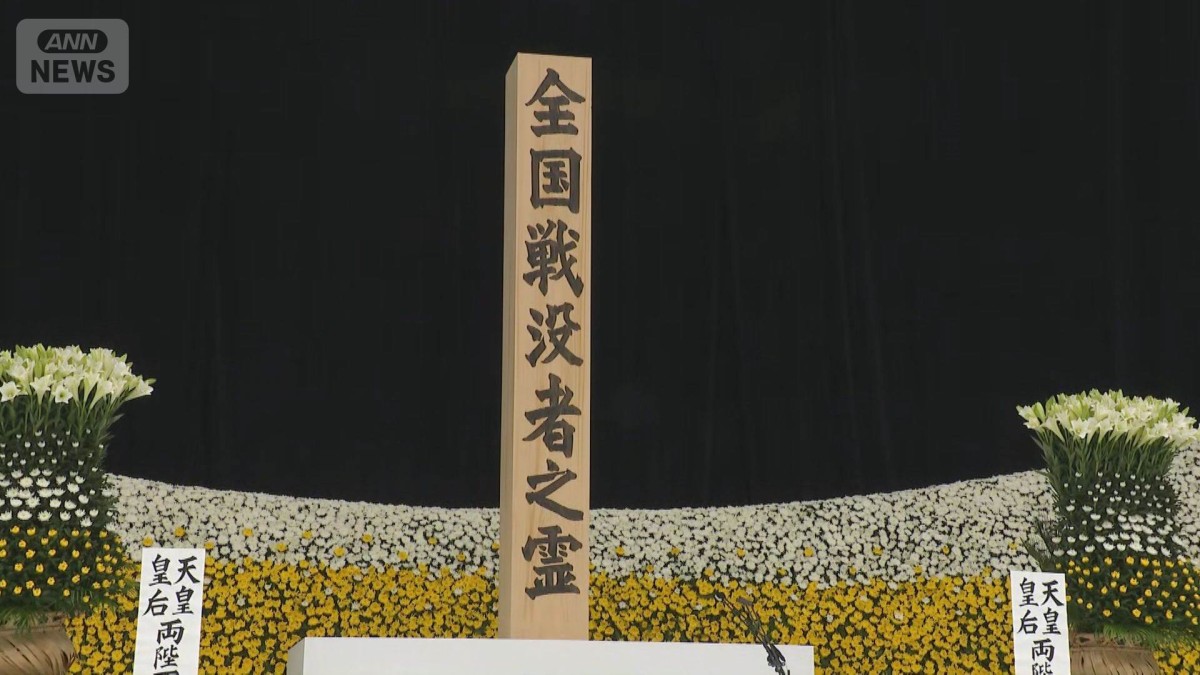 ANN
NEWS
全国戦没者之霊
天皇
皇后
両陛
天皇
皇后
両陛